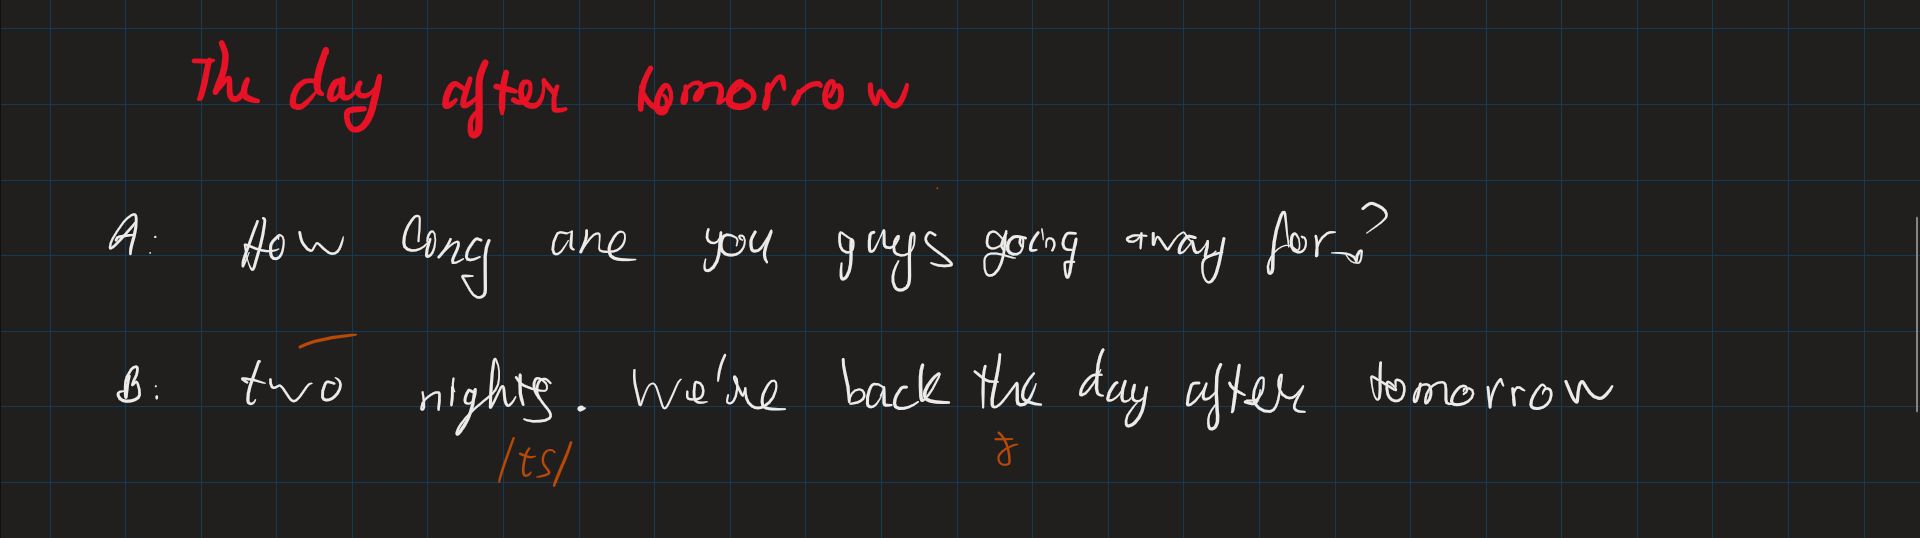 The day after tomorrow
A: How long are you guys going away for?
B: two nights. We're back the day after tomorrow
/ts/